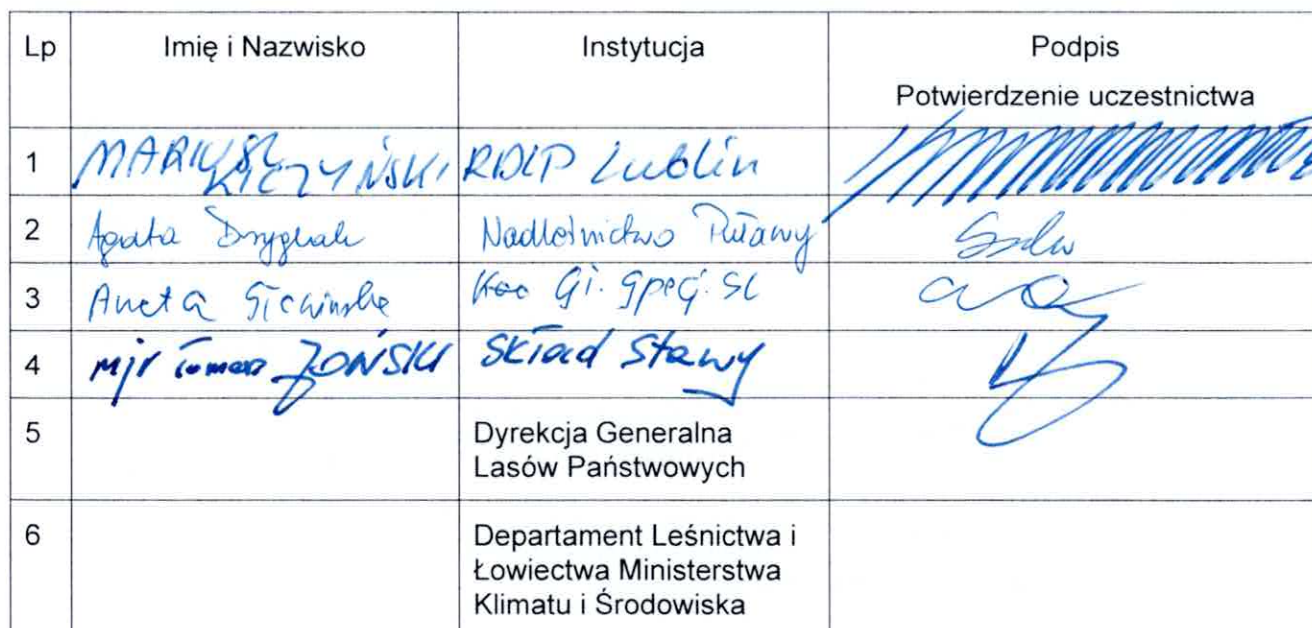 Lp Imię i Nazwisko Instytucja Podpis
Potwierdzenie uczestnictwa
1 MARIUSZ KICZYŃSKI RDLP Lublin
2 Agata Nadleśnictwo Puławy
3 Aneta
4 mjr Tomasz ZOŃSKI Skład Stawy
5 Dyrekcja Generalna
Lasów Państwowych
6 Departament Leśnictwa i
Łowiectwa Ministerstwa
Klimatu i Środowiska